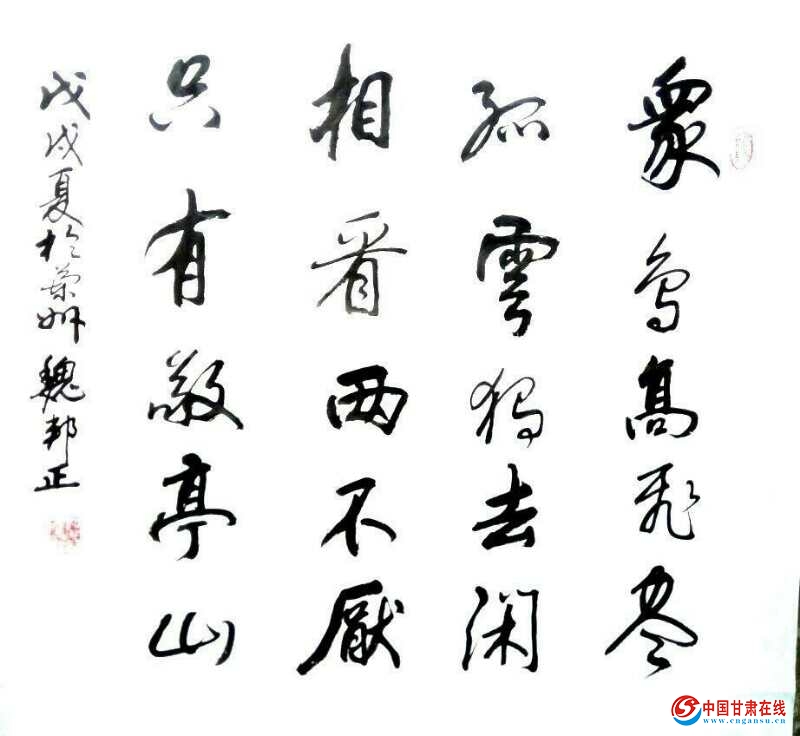 衆鳥高飛尽
孤雲独去闲
相看两不厭
只有敬亭山
戊戌夏於蘭州 魏邦正
中国甘肃在线
www.cngansu.cn